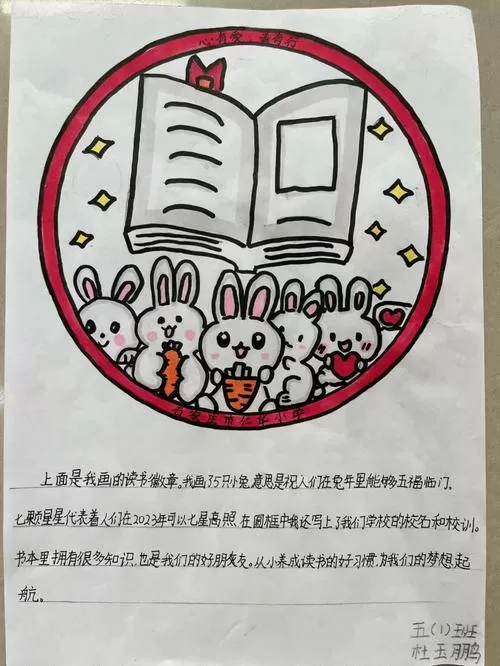 心有爱，善有行
石家庄市仁华小学
上面是我画的读书徽章。我画了5只小兔,意思是祝人们在兔年里能够五福临门。
七颗星星代表着人们在2023年可以七星高照,在圆框中我还写上了我们学校的校名和校训。
书本里拥有很多知识,也是我们的好朋友。从小养成读书的好习惯,为我们的梦想起
航。
五(1)班
杜玉鹏